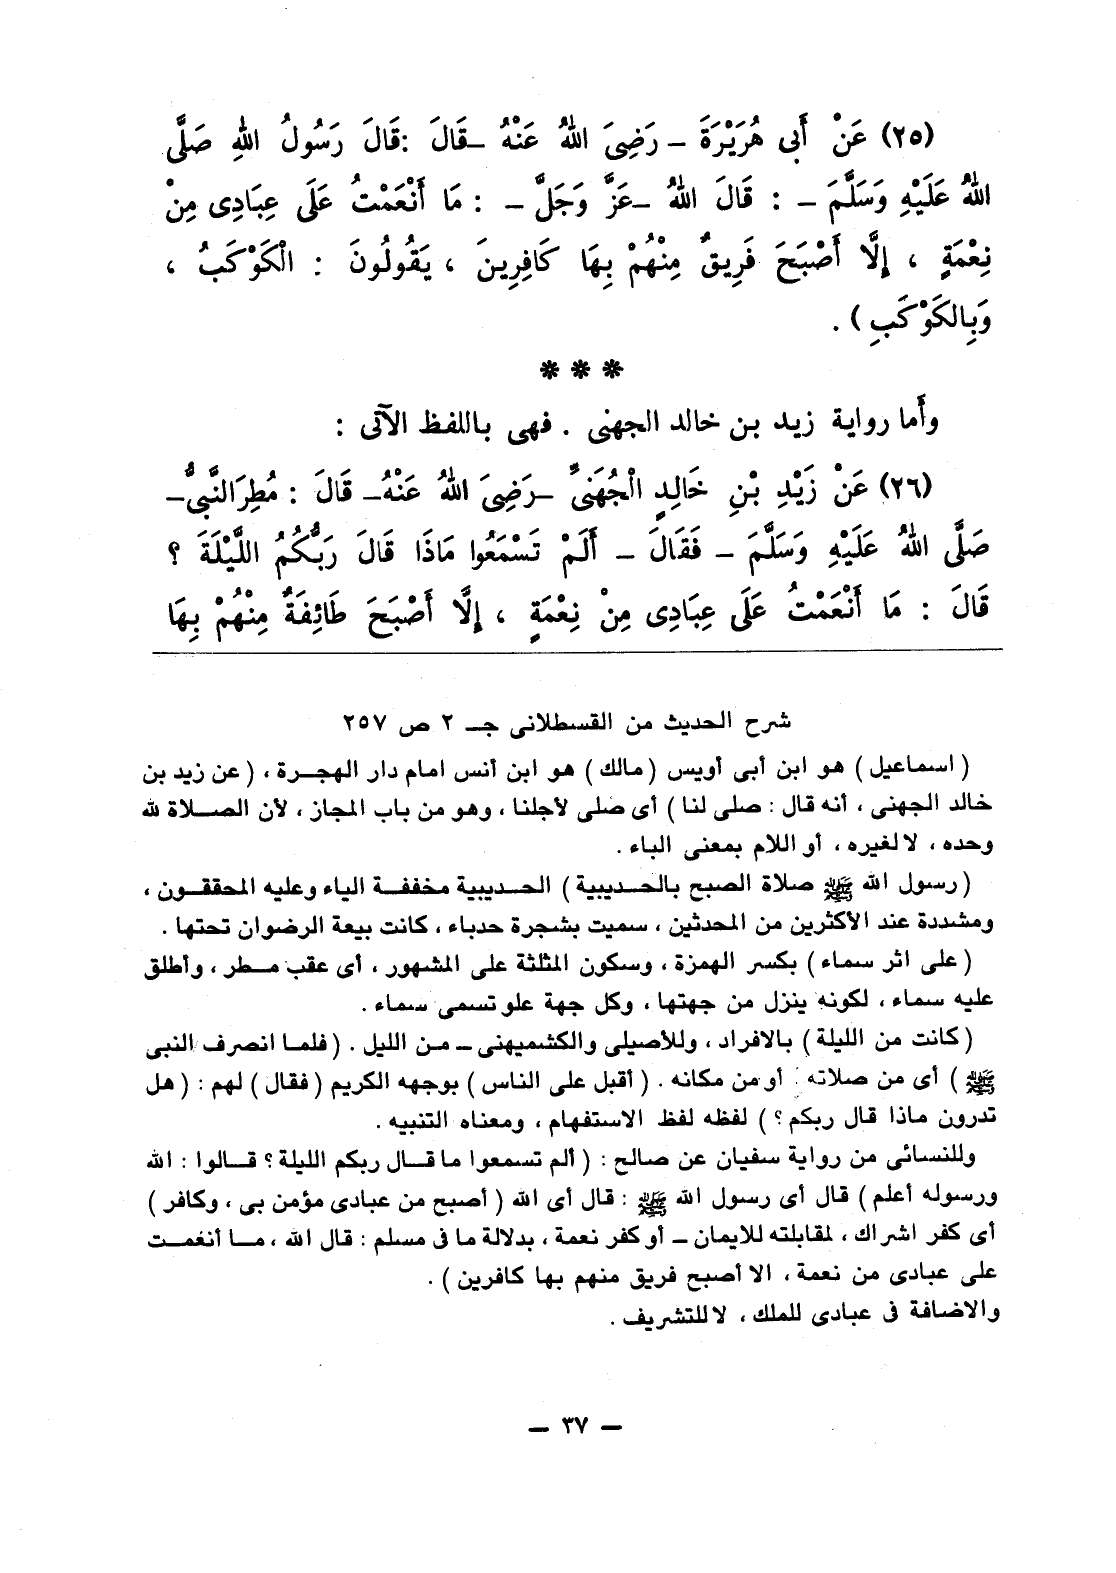 (٢٥) عَنْ أَبى هُرَيْرَةَ – رَضِىَ اللهُ عَنْهُ –قَالَ :قَالَ رَسُولُ اللهِ صَلَّى
اللهُ عَلَيْهِ وَسَلَّمَ – : قَالَ اللهُ –عَزَّ وَجَلَّ – : مَا أَنْعَمْتُ عَلَى عِبَادِى مِنْ
نِعْمَةٍ ، إِلَّا أَصْبَحَ فَرِيقٌ مِنْهُمْ بِهَا كَافِرِينَ ، يَقُولُونَ : الْكَوْكَبُ ،
وَبِالكَوْكَبِ ) .
* * *
وأَما رواية زيد بن خالد الجهنى . فهى باللفظ الآتى :
(٢٦) عَنْ زَيْدِ بْنِ خَالِدٍ الْجُهَنىِّ –رَضِىَ اللهُ عَنْهُ– قَالَ : مُطِرَالنَّبىُّ–
صَلَّى اللهُ عَلَيْهِ وَسَلَّمَ – فَقَالَ – أَلَمْ تَسْمَعُوا مَاذَا قَالَ رَبُّكُمُ اللَّيْلَةَ ؟
قَالَ : مَا أَنْعَمْتُ عَلَى عِبَادِى مِنْ نِعْمَةٍ ، إِلَّا أَصْبَحَ طَائِفَةٌ مِنْهُمْ بِهَا
شرح الحديث من القسطلانى جـ ٢ ص ٢٥٧
( اسماعيل ) هو ابن أبى أويس ( مالك ) هو ابن أنس امام دار الهجرة ، ( عن زيد بن
خالد الجهنى ، أنه قال : صلى لنا ) أى صلى لأجلنا ، وهو من باب المجاز ، لأن الصلاة لله
وحده ، لا لغيره ، أو اللام بمعنى الباء .
( رسول الله ﷺ صلاة الصبح بالحديبية ) الحديبية مخففة الياء وعليه المحققون ،
ومشددة عند الأكثرين من المحدثين ، سميت بشجرة حدباء ، كانت بيعة الرضوان تحتها .
( على اثر سماء ) بكسر الهمزة ، وسكون المثلثة على المشهور ، أى عقب مطر ، وأطلق
عليه سماء ، لكونه ينزل من جهتها ، وكل جهة علو تسمى سماء .
( كانت من الليلة ) بالافراد ، وللأصيلى والكشميهنى – من الليل . ( فلما انصرف النبى
ﷺ ) أى من صلاته : أو من مكانه . ( أقبل على الناس ) بوجهه الكريم ( فقال ) لهم : ( هل
تدرون ماذا قال ربكم ؟ ) لفظه لفظ الاستفهام ، ومعناه التنبيه .
وللنسائى من رواية سفيان عن صالح : ( ألم تسمعوا ما قال ربكم الليلة ؟ قالوا : الله
ورسوله أعلم ) قال أى رسول الله ﷺ : قال أى الله ( أصبح من عبادى مؤمن بى ، وكافر )
أى كفر اشراك ، لمقابلته للايمان – أو كفر نعمة ، بدلالة ما فى مسلم : قال الله ، ما أنغمت
على عبادى من نعمة ، الا أصبح فريق منهم بها كافرين ) .
والاضافة فى عبادى للملك ، لا للتشريف .
– ٣٧ –